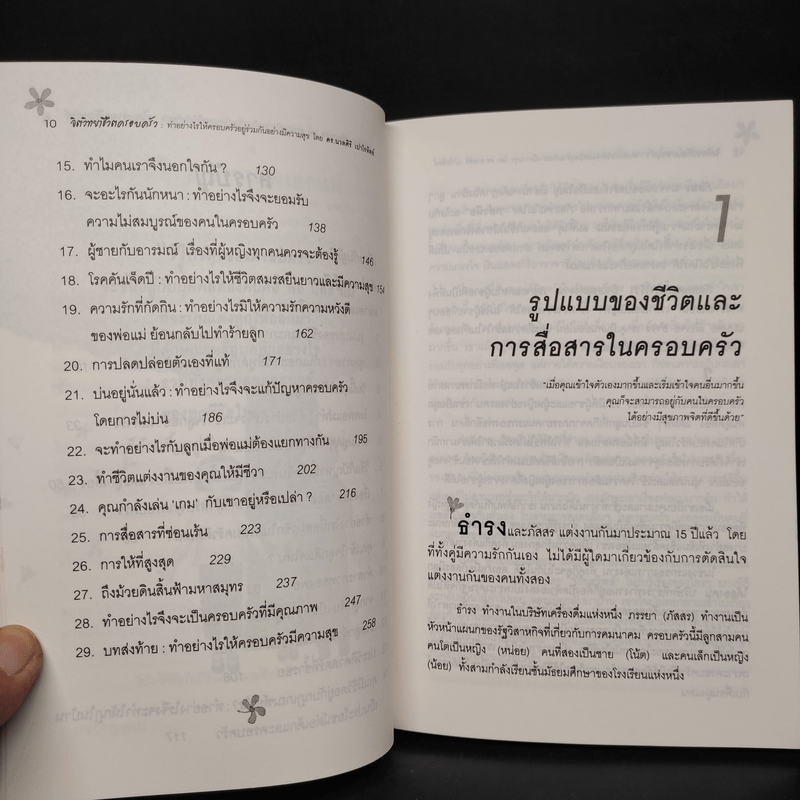 10 จิตวิทยาชีวิตครอบครัว : ทำอย่างไรให้ครอบครัวอยู่ร่วมกันอย่างมีความสุข โดย ดร.นวลศิริ เปาโรหิตย์
15. ทำไมคนเราจึงนอกใจกัน ? 130
16. จะอะไรกันนักหนา : ทำอย่างไรจึงจะยอมรับ
ความไม่สมบูรณ์ของคนในครอบครัว 138
17. ผู้ชายกับอารมณ์ เรื่องที่ผู้หญิงทุกคนควรจะต้องรู้ 146
18. โรคคันเจ็ดปี : ทำอย่างไรให้ชีวิตสมรสยืนยาวและมีความสุข 154
19. ความรักที่กัดกิน : ทำอย่างไรมิให้ความรักความหวังดี
ของพ่อแม่ ย้อนกลับไปทำร้ายลูก 162
20. การปลดปล่อยตัวเองที่แท้ 171
21. บ่นอยู่นั่นแล้ว : ทำอย่างไรจึงจะแก้ปัญหาครอบครัว
โดยการไม่บ่น 186
22. จะทำอย่างไรกับลูกเมื่อพ่อแม่ต้องแยกทางกัน 195
23. ทำชีวิตแต่งงานของคุณให้มีชีวา 202
24. คุณกำลังเล่น 'เกม' กับเขาอยู่หรือเปล่า ? 216
25. การสื่อสารที่ซ่อนเร้น 223
26. การให้ที่สูงสุด 229
27. ถึงม้วยดินสิ้นฟ้ามหาสมุทร 237
28. ทำอย่างไรจึงจะเป็นครอบครัวที่มีคุณภาพ 247
29. บทส่งท้าย : ทำอย่างไรให้ครอบครัวมีความสุข 258
1
รูปแบบของชีวิตและ
การสื่อสารในครอบครัว
"เมื่อคุณเข้าใจตัวเองมากขึ้นและเริ่มเข้าใจคนอื่นมากขึ้น
คุณก็จะสามารถอยู่กับคนในครอบครัว
ได้อย่างมีสุขภาพจิตที่ดีขึ้นด้วย"
ธำรงและภัสสร แต่งงานกันมาประมาณ 15 ปีแล้ว โดย
ที่ทั้งคู่มีความรักกันเอง ไม่ได้มีผู้ใดมาเกี่ยวข้องกับการตัดสินใจ
แต่งงานกันของคนทั้งสอง
ธำรง ทำงานในบริษัทเครื่องดื่มแห่งหนึ่ง ภรรยา (ภัสสร) ทำงานเป็น
หัวหน้าแผนกของรัฐวิสาหกิจที่เกี่ยวกับการคมนาคม ครอบครัวนี้มีลูกสามคน
คนโตเป็นหญิง (หน่อย) คนที่สองเป็นชาย (โน้ต) และคนเล็กเป็นหญิง
(น้อย) ทั้งสามกำลังเรียนชั้นมัธยมศึกษาของโรงเรียนแห่งหนึ่ง